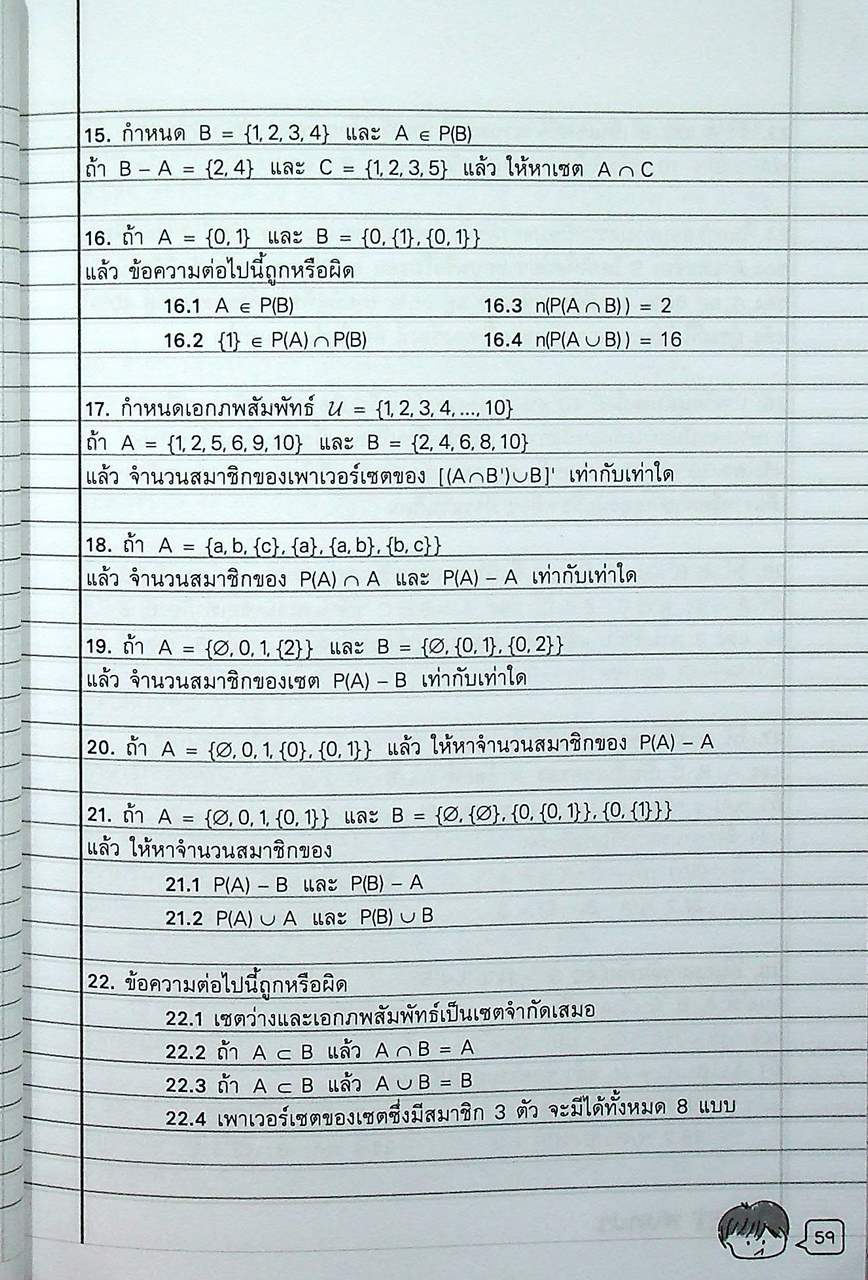 15. กำหนด B = {1, 2, 3, 4} และ A ∈ P(B)
ถ้า B – A = {2, 4} และ C = {1, 2, 3, 5} แล้ว ให้หาเซต A ∩ C
16. ถ้า A = {0, 1} และ B = {0, {1}, {0, 1}}
แล้ว ข้อความต่อไปนี้ถูกหรือผิด
16.1 A ∈ P(B) 16.3 n(P(A ∩ B)) = 2
16.2 {1} ∈ P(A) ∩ P(B) 16.4 n(P(A ∪ B)) = 16
17. กำหนดเอกภพสัมพัทธ์ U = {1, 2, 3, 4, ..., 10}
ถ้า A = {1, 2, 5, 6, 9, 10} และ B = {2, 4, 6, 8, 10}
แล้ว จำนวนสมาชิกของเพาเวอร์เซตของ [(A∩B')∪B]' เท่ากับเท่าใด
18. ถ้า A = {a, b, {c}, {a}, {a, b}, {b, c}}
แล้ว จำนวนสมาชิกของ P(A) ∩ A และ P(A) – A เท่ากับเท่าใด
19. ถ้า A = {∅, 0, 1, {2}} และ B = {∅, {0, 1}, {0, 2}}
แล้ว จำนวนสมาชิกของเซต P(A) – B เท่ากับเท่าใด
20. ถ้า A = {∅, 0, 1, {0}, {0, 1}} แล้ว ให้หาจำนวนสมาชิกของ P(A) – A
21. ถ้า A = {∅, 0, 1, {0, 1}} และ B = {∅, {∅}, {0, {0, 1}}, {0, {1}}}
แล้ว ให้หาจำนวนสมาชิกของ
21.1 P(A) – B และ P(B) – A
21.2 P(A) ∪ A และ P(B) ∪ B
22. ข้อความต่อไปนี้ถูกหรือผิด
22.1 เซตว่างและเอกภพสัมพัทธ์เป็นเซตจำกัดเสมอ
22.2 ถ้า A ⊂ B แล้ว A ∩ B = A
22.3 ถ้า A ⊂ B แล้ว A ∪ B = B
22.4 เพาเวอร์เซตของเซตซึ่งมีสมาชิก 3 ตัว จะมีได้ทั้งหมด 8 แบบ
59